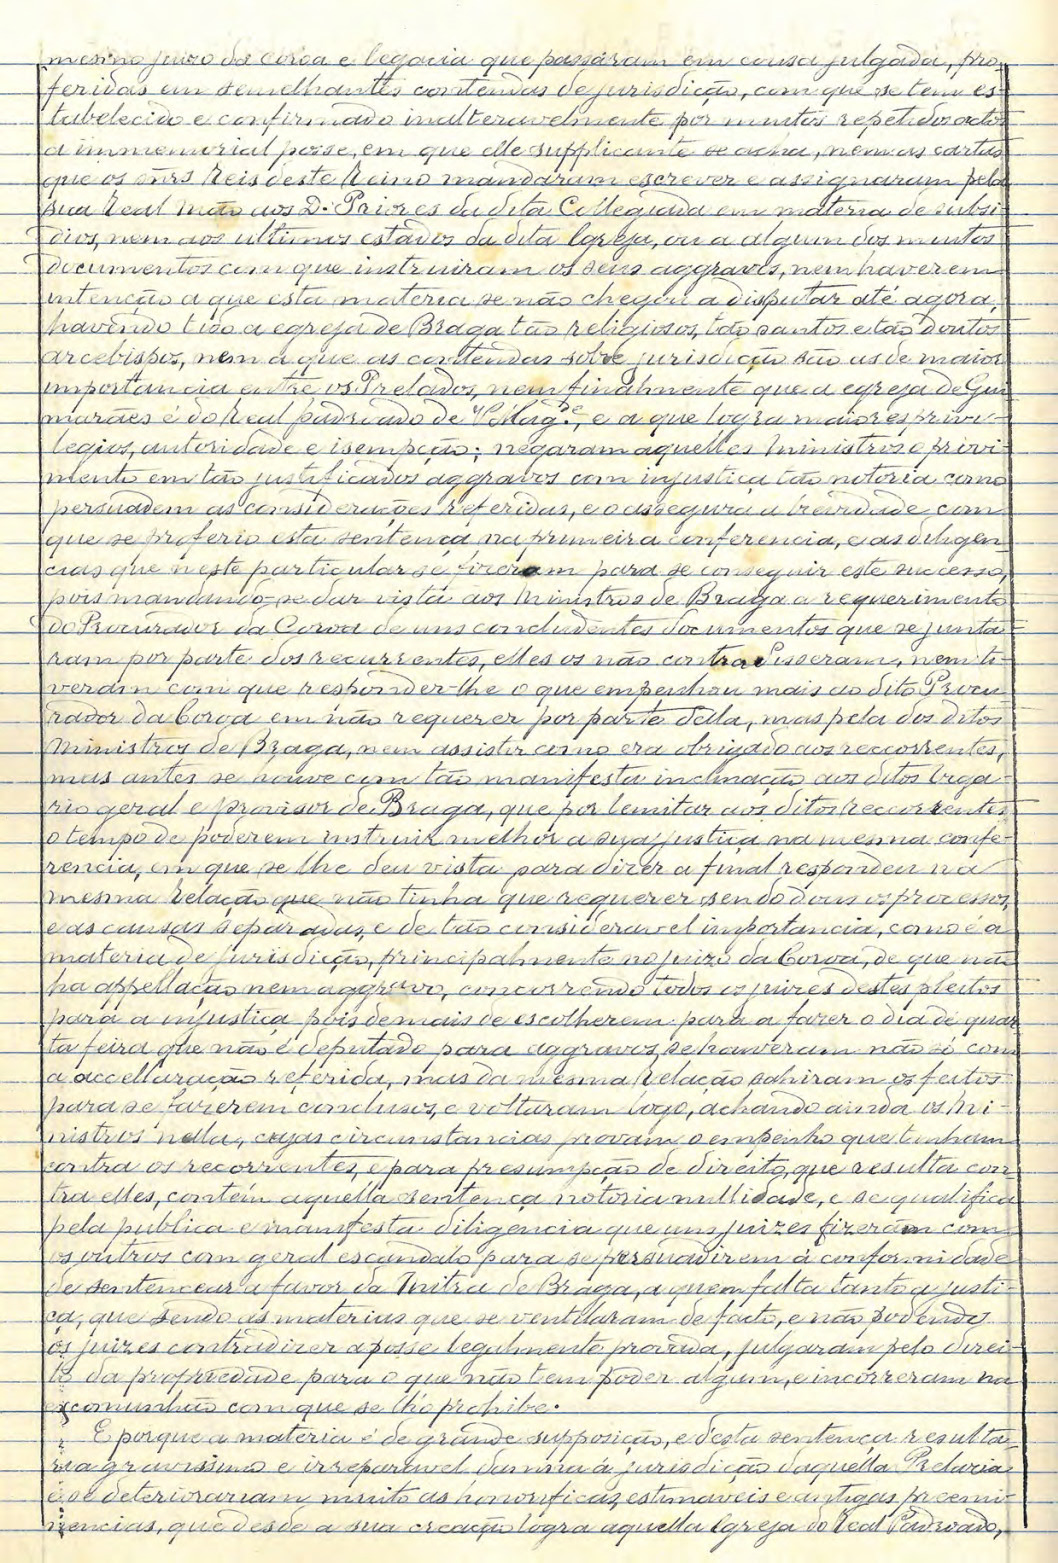 mesmo juizo da coroa e legacia que passaram em causa julgada, pro-
feridas em semelhantes contendas de jurisdicção, com que se tem es-
tabelecido e confirmado inalteravelmente por muitos repetidos actos
a immemorial posse, em que elle supplicante se acha, nem as cartas
que os sñrs Reis deste Reino mandaram escrever e assignaram pela
sua Real Mão aos D. Priores da dita Collegiada em materia de subsi-
dios, nem aos ultimos estados da dita Igreja, ou a algum dos muitos
documentos com que instruiram os seus aggravos, nem haverem
intenção a que esta materia se não chegou a disputar até agora,
havendo tido a egreja de Braga tão religiosos, tão santos e tão doutos
arcebispos, nem a que as contendas sobre jurisdicção são as de maior
importancia entre os Prelados, nem finalmente que a egreja de Gui-
marães é do Real padroado de V. Mag.de, e a que logra maiores privi-
legios, autoridade e isempção; negaram aquelles Ministros o provi-
mento em tão justificados aggravos com injustiça tão notoria como
persuadem as considerações referidas, e o assegura a brevidade com
que se proferio esta sentença na primeira conferencia, e as diligen-
cias que neste particular se fizeram para se conseguir este successo,
pois mandando-se dar vista aos Ministros de Braga a requerimento
do Procurador da Coroa de uns concludentes documentos que se junta-
ram por parte dos recurrentes, elles os não contradisseram, nem ti-
veram com que responder-lhe o que empenhou mais ao dito Procu-
rador da Coroa em não requerer por parte della, mas pela dos ditos
Ministros de Braga, nem assistir como era obrigado aos reccorrentes,
mas antes se houve com tão manifesta inclinação aos ditos Viga-
rio geral e provisor de Braga, que por lemitar aos ditos reccorrentes
o tempo de poderem instruir melhor a sua justiça na mesma confe-
rencia, em que se lhe deu vista para dizer a final respondeu na
mesma Relação que não tinha que requerer sendo dous os processos,
e as causas separadas, e de tão consideravel importancia, como é a
materia de jurisdicção, principalmente no juizo da Coroa, de que não
ha appellação nem aggravo, concorrendo todos os juizes destes pleitos
para a injustiça pois demais de escolherem para a fazer o dia de quar-
ta feira que não é deputado para aggravos, se houveram não só com
a accelleração referida, mas da mesma Relação sahiram os feitos
para se fazerem conclusos, e voltaram logo, achando ainda os Mi-
nistros nella, cujas circunstancias provam o empenho que tinham
contra os recorrentes, e para presumpção de direito, que resulta con-
tra elles, contém aquella sentença notoria nullidade, e se qualifica
pela publica e manifesta diligencia que uns juizes fizeram com
os outros com geral escandalo para se persuadirem á conformidade
de sentencear a favor da Mitra de Braga, a quem falta tanto a justi-
ça, que sendo as materias que se ventilaram de facto, e não podendo
os juizes contradizer a posse legalmente provada, julgaram pelo direi-
to da propriedade para o que não tem poder algum, e incorreram na
excomunhão com que se lho prohibe.
E porque a materia é de grande supposição, e desta sentença resulta-
ria gravissimo e irreparavel damno á jurisdicção daquella Prelazia
e se deteriorariam muito as honorificas, estimaveis e antigas preemi-
nencias, que desde a sua creação logra aquella Igreja do Real Padroado,